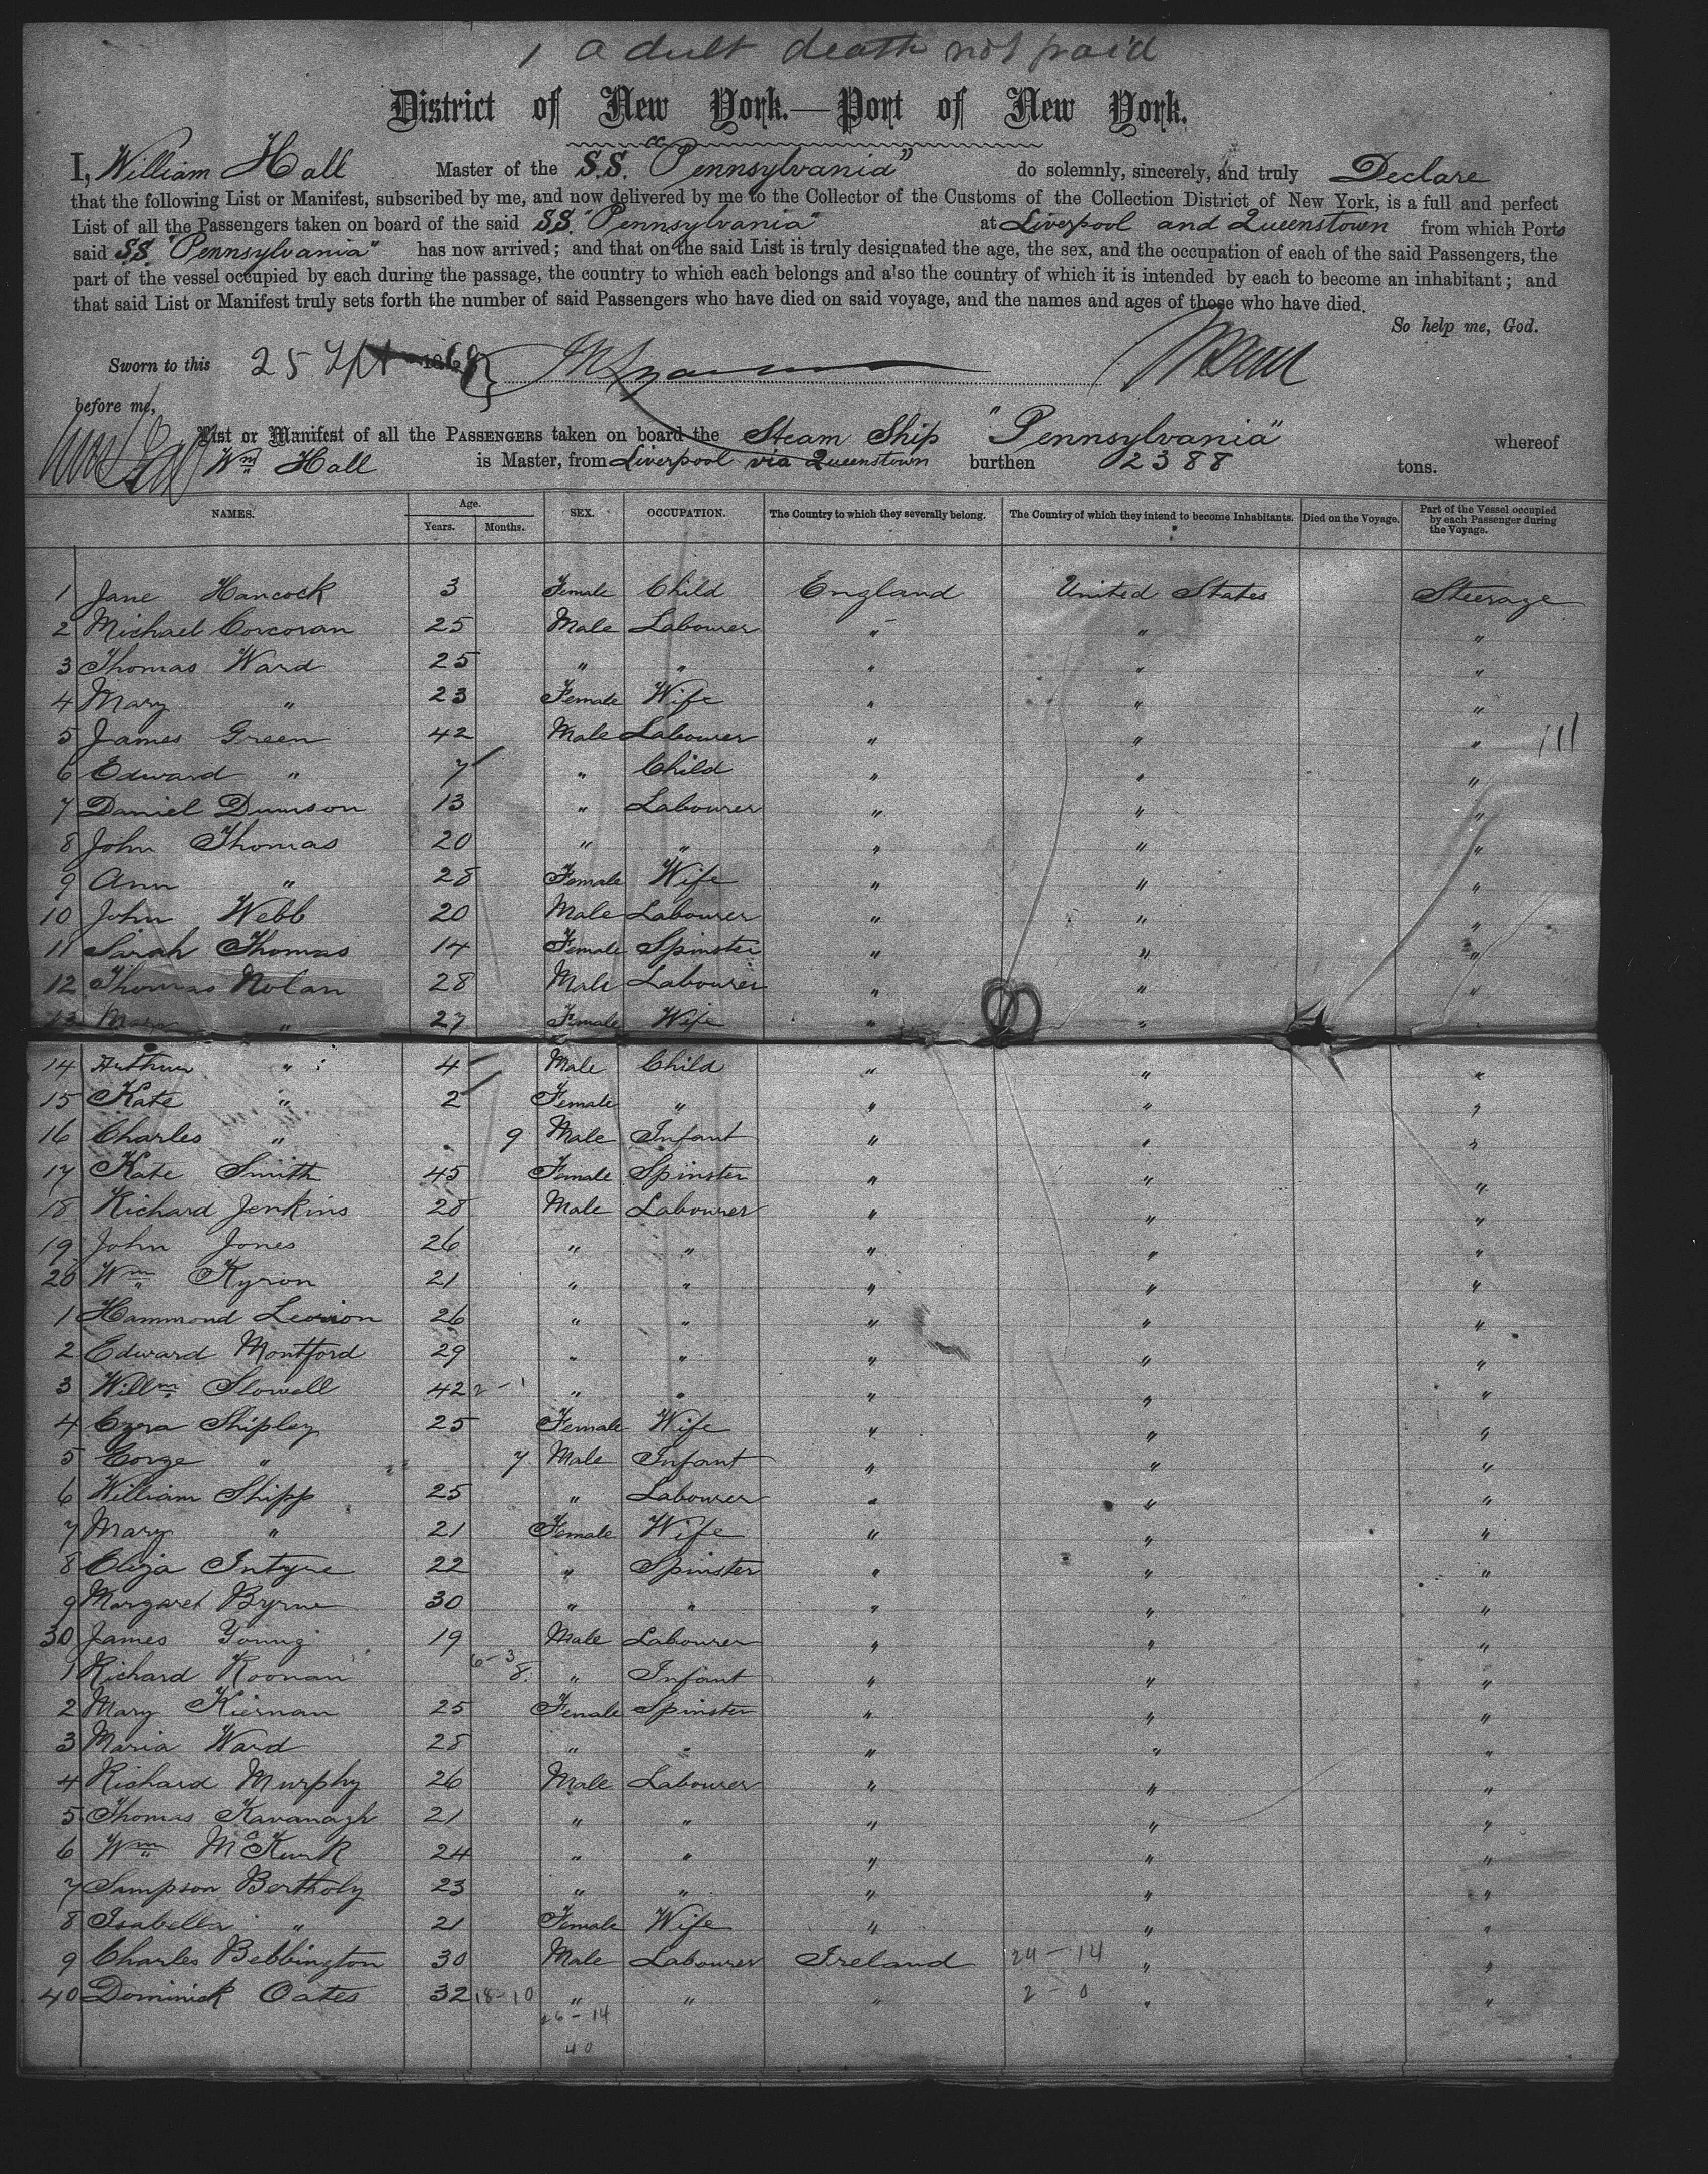 1 adult death not paid
District of New York.—Port of New York.
I, William Hall Master of the S.S. "Pennsylvania" do solemnly, sincerely, and truly Declare
that the following List or Manifest, subscribed by me, and now delivered by me to the Collector of the Customs of the Collection District of New York, is a full and perfect
List of all the Passengers taken on board of the said S.S. "Pennsylvania" at Liverpool and Queenstown from which Ports
said S.S. "Pennsylvania" has now arrived; and that on the said List is truly designated the age, the sex, and the occupation of each of the said Passengers, the
part of the vessel occupied by each during the passage, the country to which each belongs and also the country of which it is intended by each to become an inhabitant; and
that said List or Manifest truly sets forth the number of said Passengers who have died on said voyage, and the names and ages of those who have died.
So help me, God.
Sworn to this 25 Sept 1868
before me,
List or Manifest of all the PASSENGERS taken on board the Steam Ship "Pennsylvania" whereof
Wm Hall is Master, from Liverpool via Queenstown burthen 2388 tons.
NAMES. Age. Years. Months. SEX. OCCUPATION. The Country to which they severally belong. The Country of which they intend to become Inhabitants. Died on the Voyage. Part of the Vessel occupied by each Passenger during the Voyage.
1 Jane Hancock 3 Female Child England United States Steerage
2 Michael Corcoran 25 Male Labourer " " "
3 Thomas Ward 25 " " " " "
4 Mary " 23 Female Wife " " "
5 James Green 42 Male Labourer " " " 111
6 Edward " 7 " Child " " "
7 Daniel 13 " Labourer " " "
8 John Thomas 20 " " " " "
9 Ann " 28 Female Wife " " "
10 John Webb 20 Male Labourer " " "
11 Sarah Thomas 14 Female Spinster " " "
12 Thomas Nolan 28 Male Labourer " " "
13 Mary " 27 Female Wife " "
14 Arthur " 4 Male Child " " "
15 Kate " 2 Female " " " "
16 Charles " 9 Male Infant " " "
17 Kate Smith 45 Female Spinster " " "
18 Richard Jenkins 28 Male Labourer " " "
19 John Jones 26 " " " " "
20 Wm Kyron 21 " " " " "
1 Hammond 26 " " " " "
2 Edward Montford 29 " " " " "
3 Willm Slowell 42 2 - 1 " " " " "
4 Ezra Shipley 25 Female Wife " " "
5 Eorge " 7 Male Infant " " "
6 William Shipp 25 " Labourer " " "
7 Mary " 21 Female Wife " " "
8 Eliza Intyre 22 " Spinster " " "
9 Margaret Byrne 30 " " " " "
30 James Young 19 Male Labourer " " "
6 - 3
1 Richard Koonan 8 " Infant " " "
2 Mary Kiernan 25 Female Spinster " " "
3 Maria Ward 28 " " " " "
4 Richard Murphy 26 Male Labourer " " "
5 Thomas Kavanagh 21 " " " " "
6 Wm 24 " " " " "
7 Sampson Bertholy 23 " " " " "
8 Isabella " 21 Female Wife " " "
9 Charles Bebbington 30 Male Labourer Ireland 24 - 14 " "
40 Dominick Oates 32 18-10 " " " 2 - 0 " "
26 - 14
40